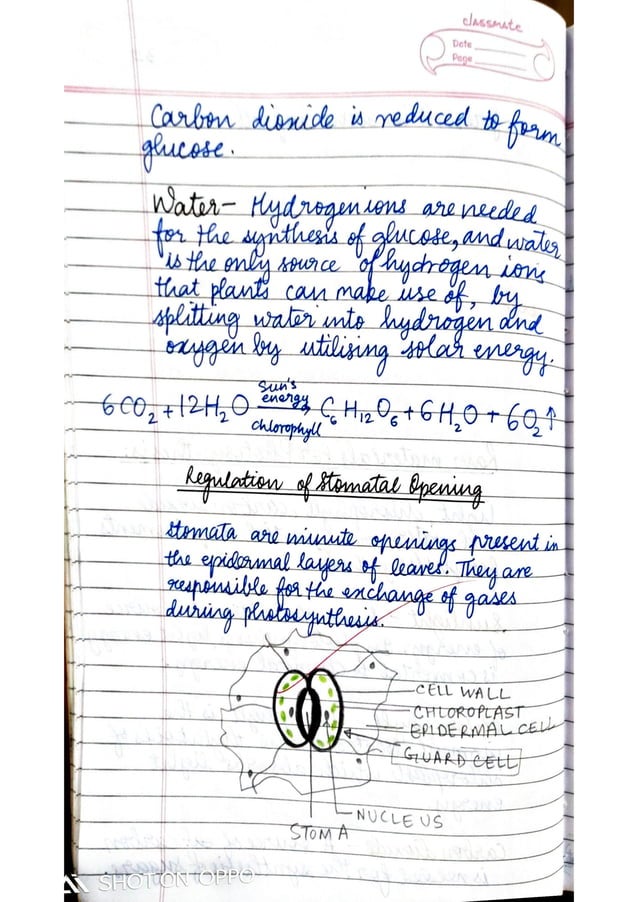 classmate
Date
Page
Carbon dioxide is reduced to form
glucose.
Water- Hydrogen ions are needed
for the synthesis of glucose, and water
is the only source of hydrogen ions
that plants can make use of, by
splitting water into hydrogen and
oxygen by utilising solar energy.
6CO₂ + 12H₂O Sun's energy chlorophyll C₆H₁₂O₆ + 6H₂O + 6O₂↑
Regulation of Stomatal Opening
Stomata are minute openings present in
the epidermal layers of leaves. They are
responsible for the exchange of gases
during photosynthesis.
CELL WALL
CHLOROPLAST
EPIDERMAL CELL
GUARD CELL
NUCLEUS
STOMA
SHOT ON OPPO